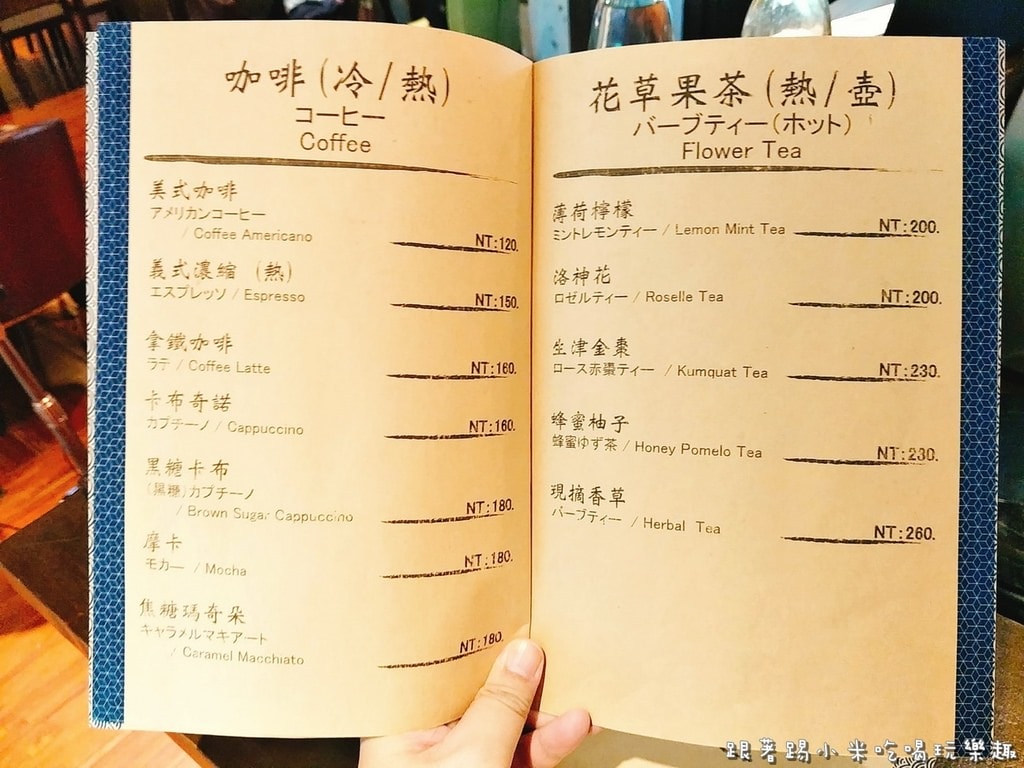 咖啡(冷/熱)
コーヒー
Coffee
美式咖啡
アメリカンコーヒー
/ Coffee Americano
NT:120.
義式濃縮 (熱)
エスプレッソ / Espresso
NT:150.
拿鐵咖啡
ラテ / Coffee Latte
NT:160.
卡布奇諾
カプチーノ / Cappuccino
NT:160.
黑糖卡布
(黑糖)カプチーノ
/ Brown Sugar Cappuccino
NT:180.
摩卡
モカ― / Mocha
NT:180.
焦糖瑪奇朵
キャラメルマキアート
/ Caramel Macchiato
NT:180.
花草果茶(熱/壺)
バーブティー(ホット)
Flower Tea
薄荷檸檬
ミントレモンティー / Lemon Mint Tea
NT:200.
洛神花
ロゼルティー / Roselle Tea
NT:200.
生津金棗
ロース赤棗ティー / Kumquat Tea
NT:230.
蜂蜜柚子
蜂蜜ゆず茶 / Honey Pomelo Tea
NT:230.
現摘香草
バーブティー / Herbal Tea
NT:260.
跟著踢小米吃喝玩樂趣